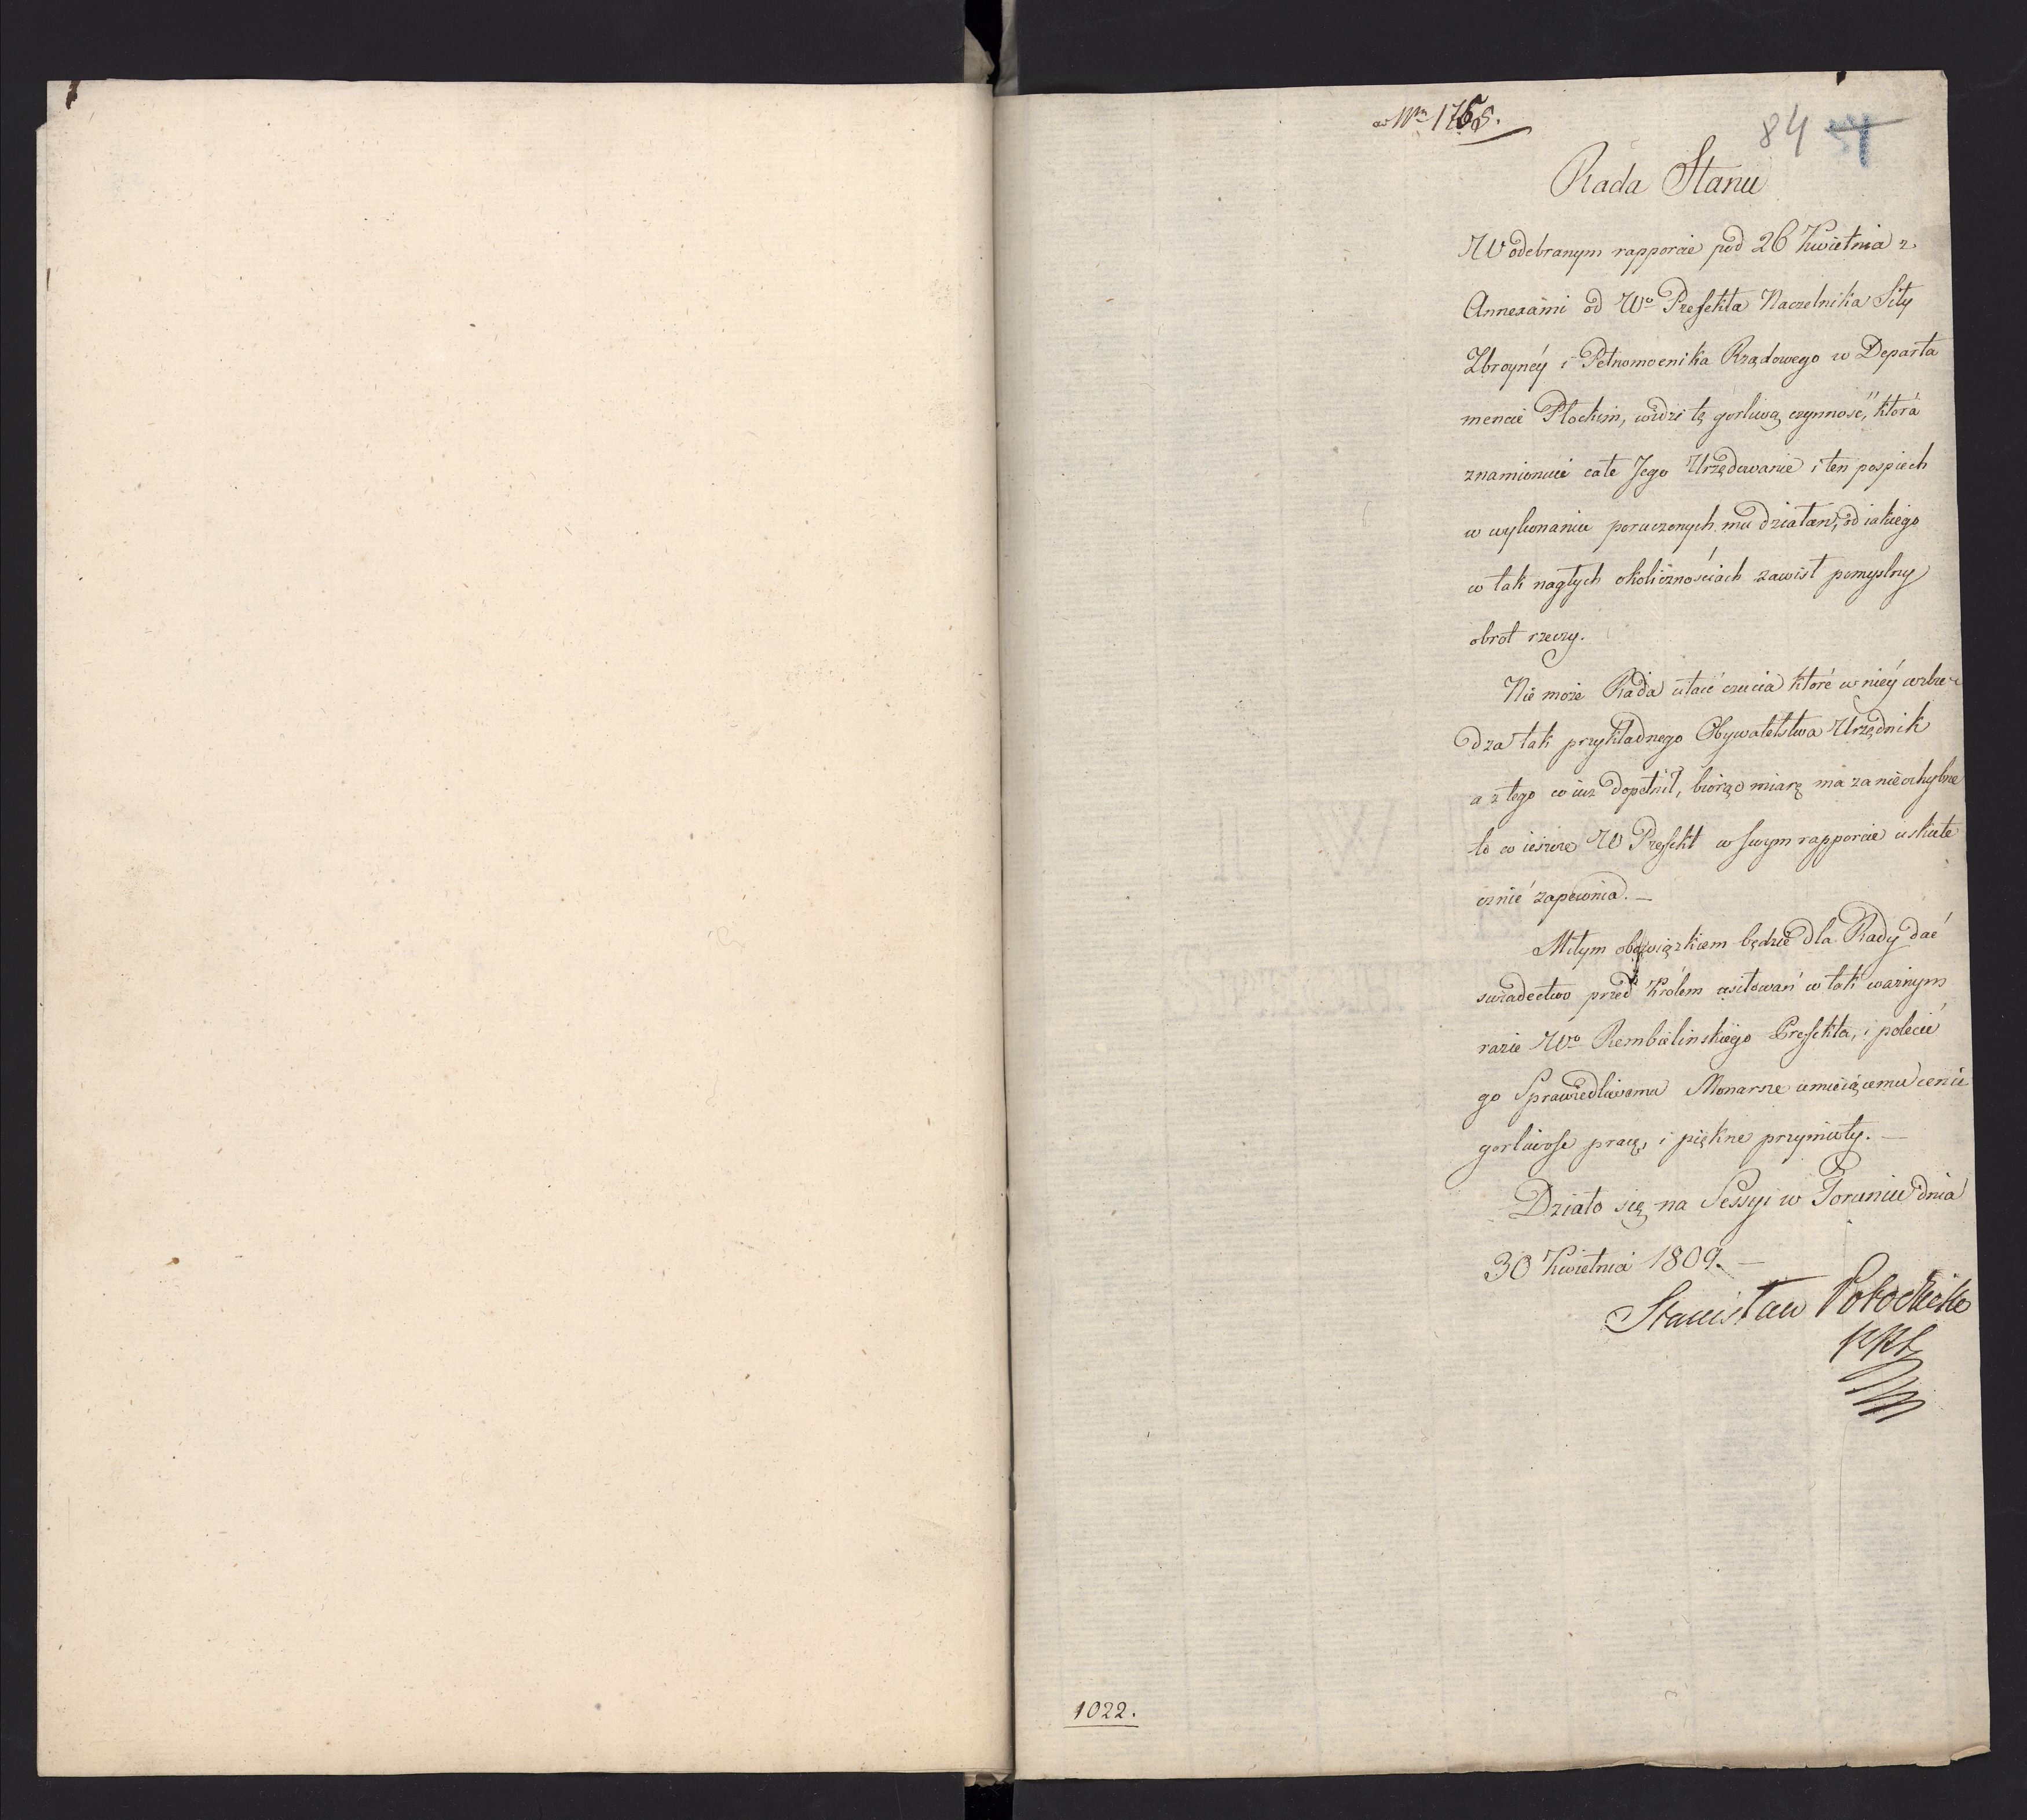 ad Nrm 1768.
84
Rada Stanu
W odebranym rapporcie pod 26 Kwietnia z
Annexami od Wo Prefekta Naczelnika Siły
Zbroyney i Pełnomocnika Rządowego w Departa
mencie Płockim, widzi tę gorliwą czynność, która
znamionuie całe Jego Urzędowanie i ten pospiech
w wykonaniu poruczonych mu działań, od iakiego
w tak nagłych okolicznościach zawisł pomyslny
obrot rzeczy.
Nie może Rada utaić czucia które w niéy wzbu-
dza tak przykładnego Obywatelstwa Urzędnik
a z tego co iuż dopełnił, biorąc miarę ma za nieochybne
to co ieszcze W Prefekt w swym rapporcie uskute
cznić zapewnia. —
Miłym obowiązkiem będzie dla Rady dać
swiadectwo przed Królem usiłowań w tak ważnym
razie Wo Rembielinskiego Prefekta, i polecić
go Sprawiedliwemu Monarsze umieiącemu cenić
gorliwość pracę, i piękne przymioty. —
Działo się na Sessyi w Toruniu dnia
30 Kwietnia 1809. —
Stanisław Potocki
1022.